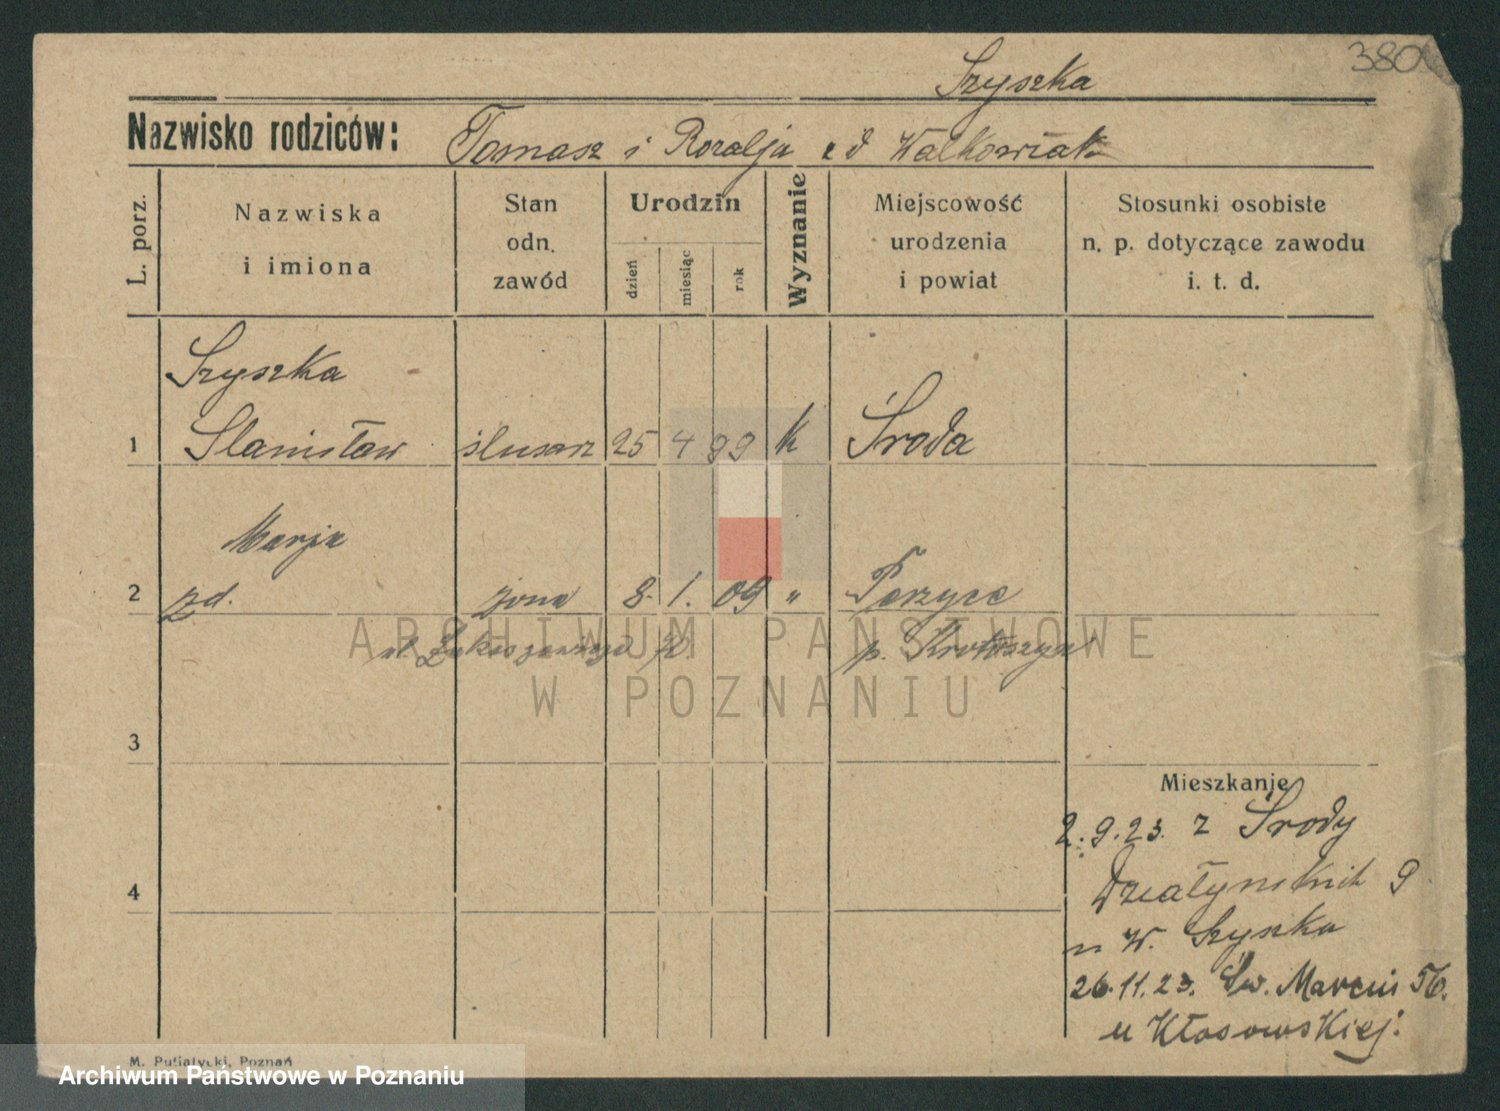 380
Szyszka
Nazwisko rodziców: Tomasz i Rozalja z d Walkowiak
L. porz.
Nazwiska
i imiona
Stan
odn.
zawód
Urodzin
dzień
miesiąc
rok
Wyznanie
Miejscowość
urodzenia
i powiat
Stosunki osobiste
n. p. dotyczące zawodu
i. t. d.
Szyszka
1 Stanisław ślusarz 25 4 99 k Środa
Marja
2 zd. żona 8. 1. 09 "
p. Krotoszyn
ARCHIWUM PAŃSTWOWE
W POZNANIU
3
Mieszkanie
2.9.23. z Środy
4
Działyńskich 9
u W. Szyszka
26.11.23. Św. Marcin 56.
u Kłosowskiej.
M. Putiatycki, Poznań
Archiwum Państwowe w Poznaniu